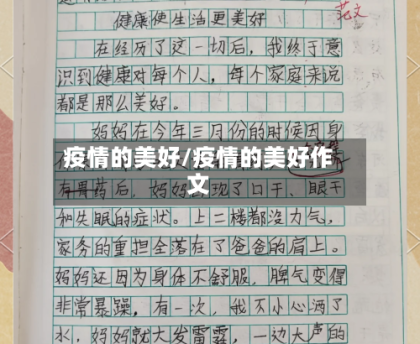 范文
健康使生活更美好
在经历了这一切后，我终于意
识到健康对每个人，每个家庭来说
都是那么美好。
妈妈在今年三月份的时候因身
疫情的美好/疫情的美好作
文
药后，妈妈 现了口干、眼干
和失眠的症状。上二楼都没力气，
家务的重担全落在了爸爸的肩上。
妈妈还因为身体不舒服，脾气变得
非常暴躁，有一次，我不小心洒了
水，妈妈就大发雷霆，一边大声的